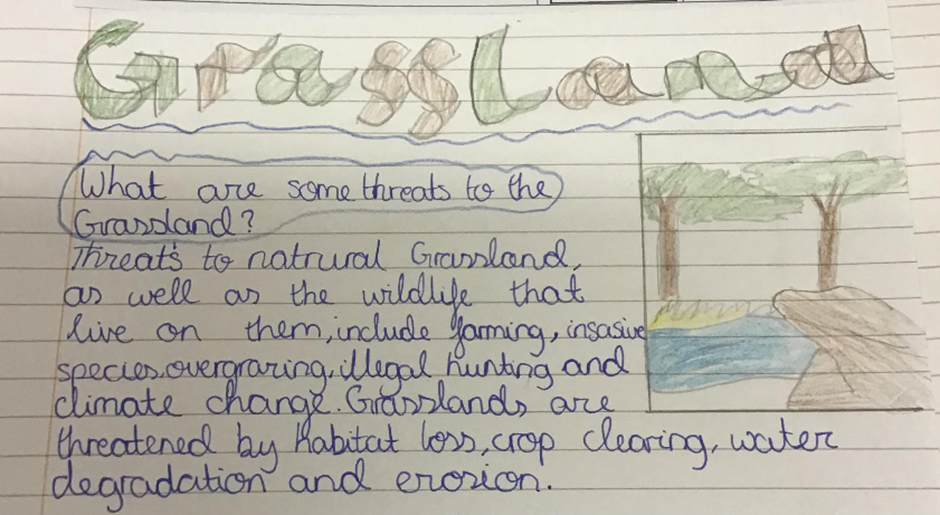 GrassLand
What are some threats to the
Grassland?
Threats to natrural Grassland,
as well as the wildlife that
live on them, include farming, insasive
species, overgrazing, illegal hunting and
climate change. Grasslands are
threatened by Habitat loss, crop clearing, water
degradation and erosion.